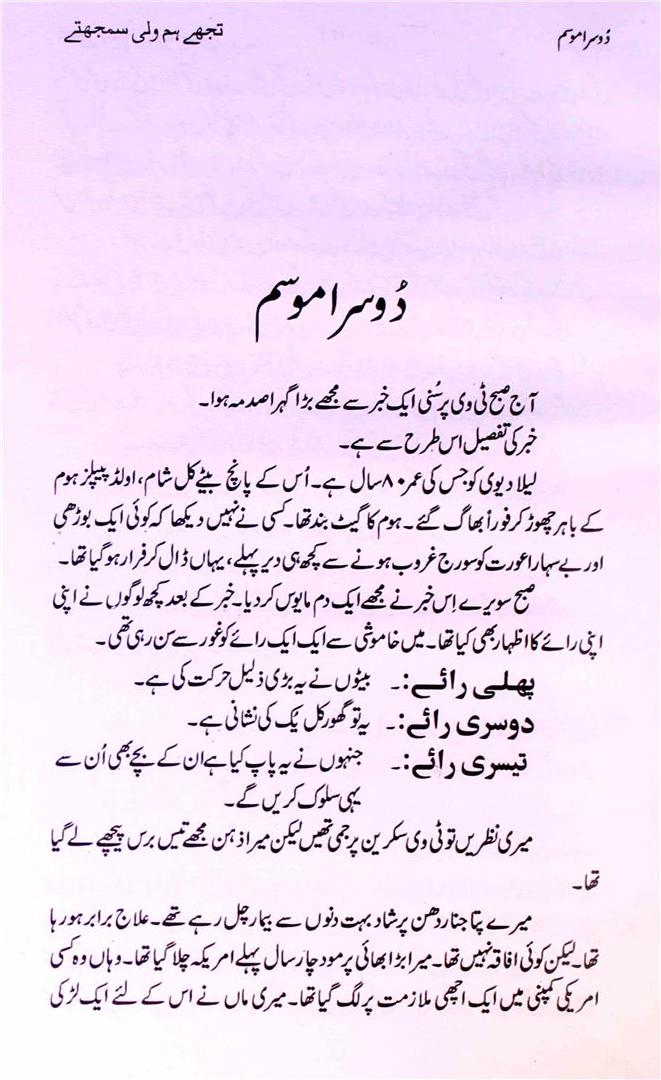 دُوسرا موسم
تجھے ہم ولی سمجھتے
دُوسرا موسم
آج صبح ٹی وی پر سُنی ایک خبر سے مجھے بڑا گہرا صدمہ ہوا۔
خبر کی تفصیل اس طرح سے ہے۔
لیلا دیوی کو جس کی عمر ۸۰ سال ہے۔ اُس کے پانچ بیٹے کل شام، اولڈ پیپلز ہوم
کے باہر چھوڑ کر فوراً بھاگ گئے۔ ہوم کا گیٹ بند تھا۔ کسی نے نہیں دیکھا کہ کوئی ایک بوڑھی
اور بے سہارا عورت کو سورج غروب ہونے سے کچھ ہی دیر پہلے، یہاں ڈال کر فرار ہو گیا تھا۔
صبح سویرے اِس خبر نے مجھے ایک دم مایوس کر دیا۔ خبر کے بعد کچھ لوگوں نے اپنی
اپنی رائے کا اظہار بھی کیا تھا۔ میں خاموشی سے ایک ایک رائے کو غور سے سن رہی تھی۔
پہلی رائے:۔ بیٹوں نے یہ بڑی ذلیل حرکت کی ہے۔
دوسری رائے:۔ یہ تو گھور کل یُگ کی نشانی ہے۔
تیسری رائے:۔ جنہوں نے یہ پاپ کیا ہے ان کے بچے بھی اُن سے
یہی سلوک کریں گے۔
میری نظریں تو ٹی وی سکرین پر جمی تھیں لیکن میرا ذہن مجھے تیس برس پیچھے لے گیا
تھا۔
میرے پتا جناردھن پرشاد بہت دنوں سے بیمار چل رہے تھے۔ علاج برابر ہو رہا
تھا۔ لیکن کوئی افاقہ نہیں تھا۔ میرا بڑا بھائی پرمود چار سال پہلے امریکہ چلا گیا تھا۔ وہاں وہ کسی
امریکی کمپنی میں ایک اچھی ملازمت پر لگ گیا تھا۔ میری ماں نے اس کے لئے ایک لڑکی